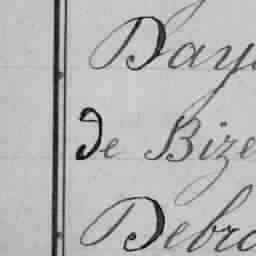 Day
de Bize
Debro